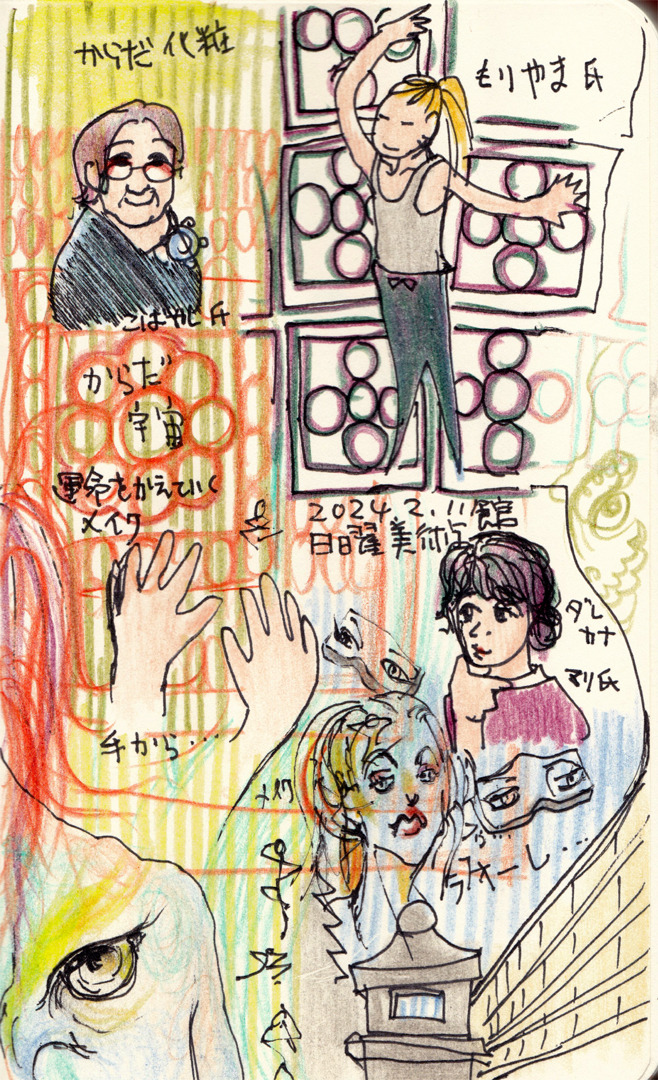 からだ 化粧
もりやま氏
こばやし氏
からだ
宇宙
運命をかえていく
メイク
2024.2.11
日曜美術館
ダレカナ
マリ氏
手から...
メイク